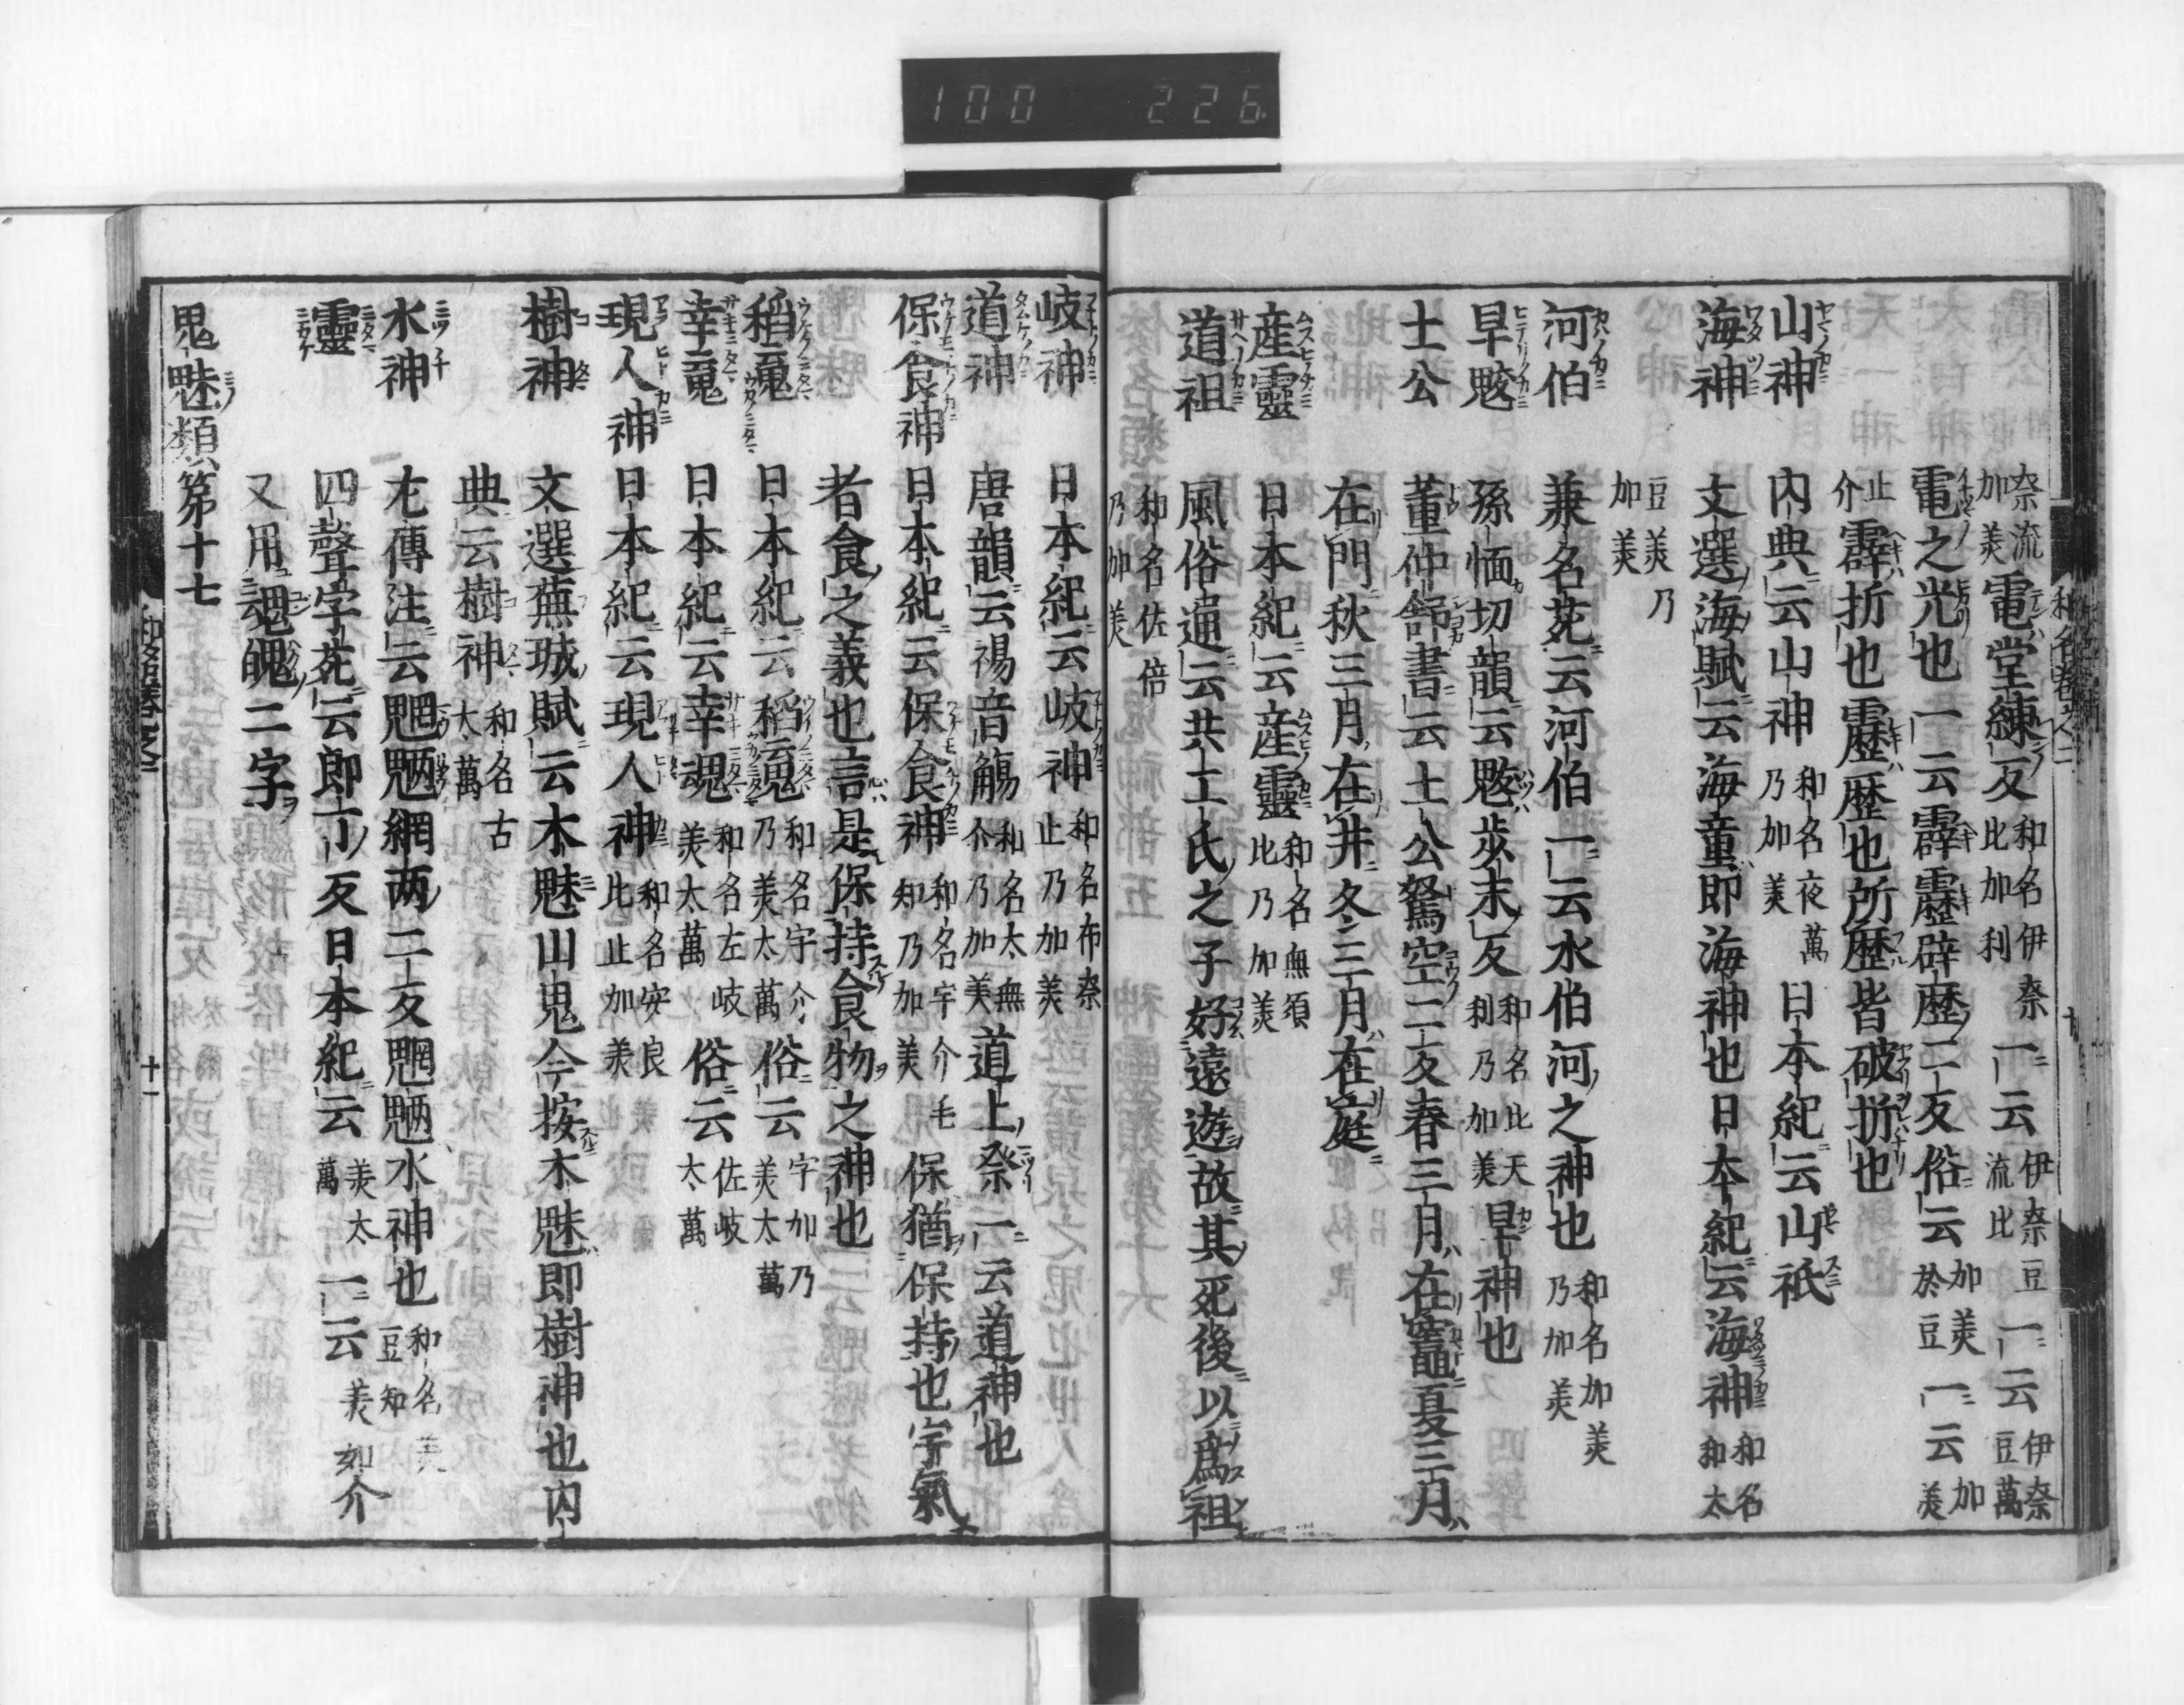 100 226
奈流加美電堂練反和名伊奈比加利一云伊奈豆流比一云伊奈豆萬
電之光也一云霹靂辟歴二反俗云加美於豆一云加美
止介霹折也靂歴也所歴皆破折也
山神 内典云山神和名夜萬乃加美日本紀云山祇
海神 文選海賦云海童即海神也日本紀云海神和名和太
豆美乃加美
河伯 兼名苑云河伯一云水伯河之神也和名加美乃加美
旱魃 孫愐切韻云魃歩末反和名比天利乃加美旱神也
土公 董仲舒書云土公駕空二反春三月在竈夏三月
在門秋三月在井冬三月在庭
産靈 日本紀云産靈和名無須比乃加美
道祖 風俗通云共工氏之子好遠遊故其死後以爲祖
和名佐倍乃加美
和名巻之二 十
岐神 日本紀云岐神和名布奈止乃加美
道神 唐韻云禓音觴和名太無介乃加美道上祭一云道神也
保食神 日本紀云保食神和名宇介毛知乃加美保猶保持也宇氣
者食之義也言是保持食物之神也
稻魂 日本紀云稻魂和名宇介乃美太萬俗云宇加乃美太萬
幸魂 日本紀云幸魂和名左岐美太萬俗云佐岐太萬
現人神 日本紀云現人神和名安良比止加美
樹神 文選蕪城賦云木魅山鬼今按木魅即樹神也内
典云樹神和名古太萬
水神 左傳注云魍魎網两二反魍魎水神也和名美豆知
靈 四聲字苑云郎丁反日本紀云美太萬一云美加介
又用魂魄二字
鬼魅類第十七
十一